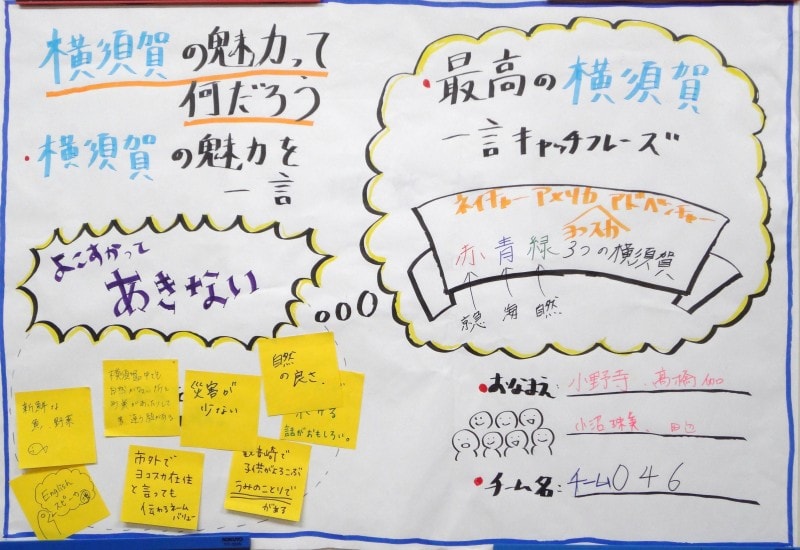 横須賀の魅力って
何だろう
・横須賀の魅力を
一言
よこすかって
あきない
・最高の横須賀
一言キャッチフレーズ
ネイチャー アメリカ アドベンチャー
ヨコスカ
赤 青 緑 3つの横須賀
京急 海 自然
新鮮な
魚、野菜
災害が
少ない
自然
の良さ。
話がおもしろい。
English
スピーカー
市外で
ヨコスカ在住
と言っても
伝わるネーム
バリュー
観音崎で
子供がよろこぶ
うみのことりで
がある
・おなまえ: 小野寺、高橋
小沼
・チーム名: チーム046